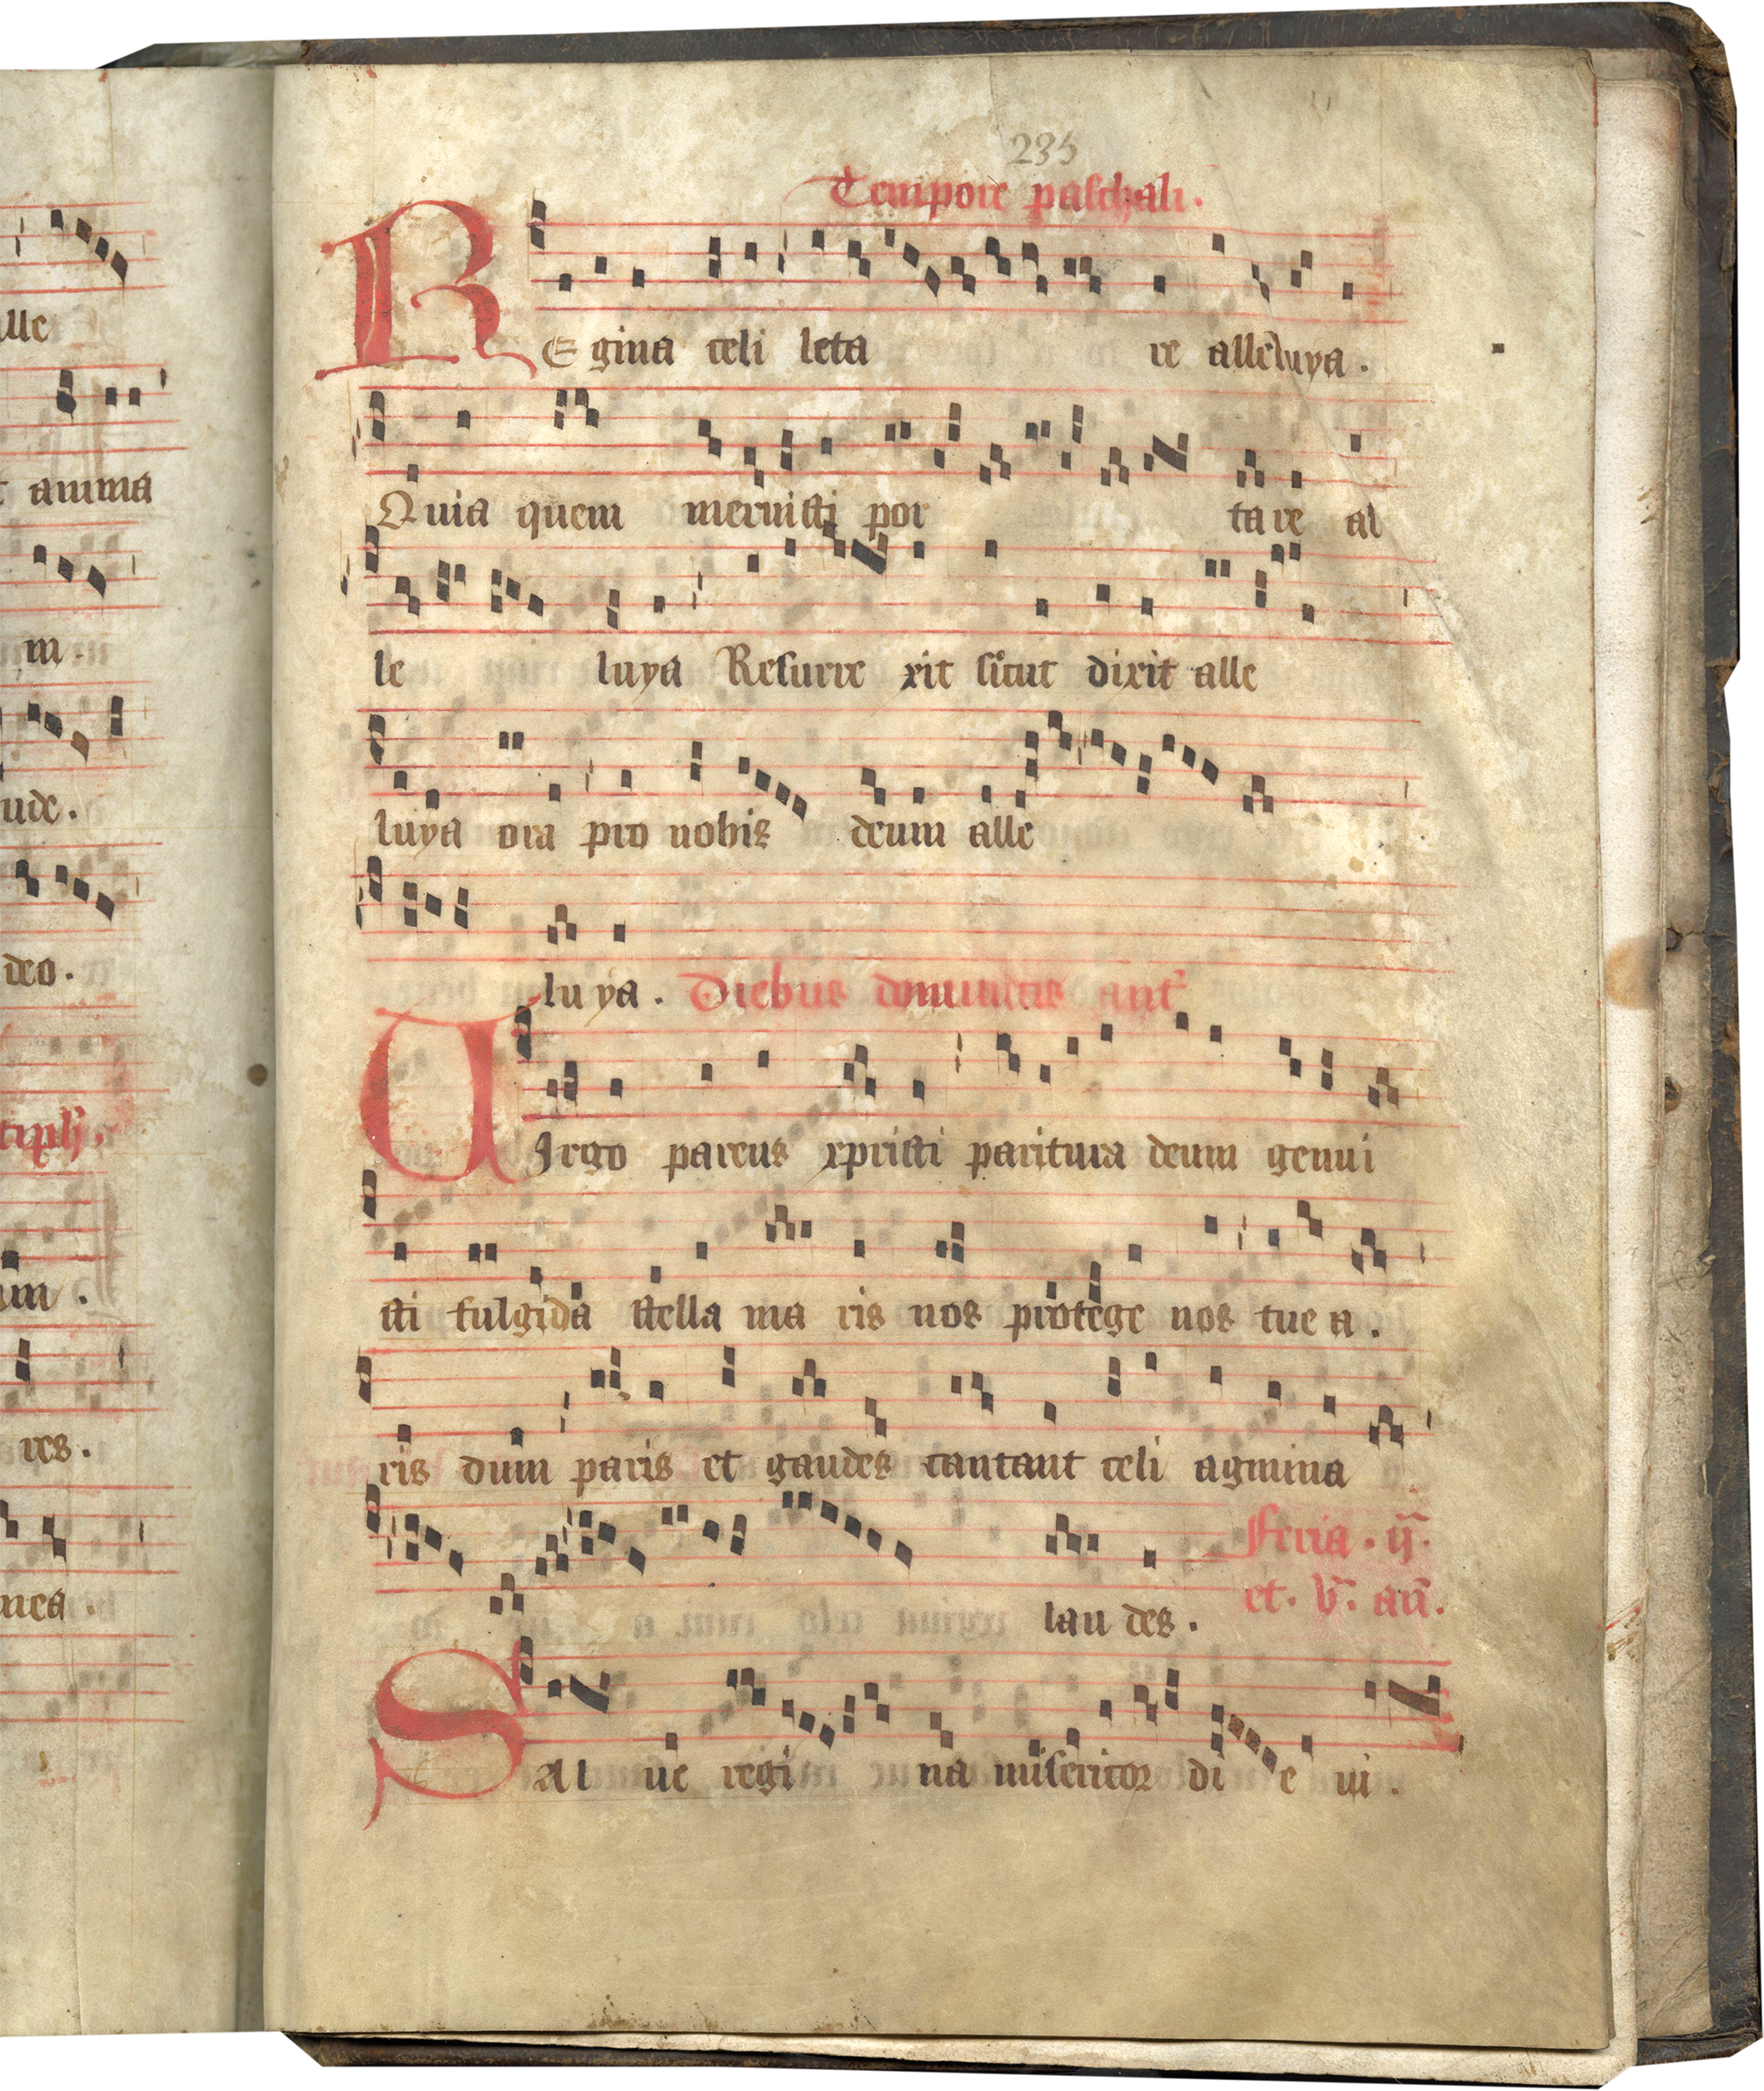 lle
t anima
m.
ude.
deo.
um.
res.
mea.
235
Tempore paschali.
REgina celi leta re alleluya.
Quia quem meruisti por tare al
le luya Resurre xit sicut dixit alle
luya ora pro nobis deum alle
luya. Diebus dominicis ant̃
UIrgo parens xpristi paritura deum genui
sti fulgida stella ma ris nos protege nos tue a.
ris dum paris et gaudes cantant celi agmina
Feria. ij.
lau des. et. v. añ.
SAl ue regi na misericor di e ui.